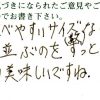 づきになられたご意見やご
でお書き下さい。
べやすいサイズな
並ぶのをずっと
美味しいですね.